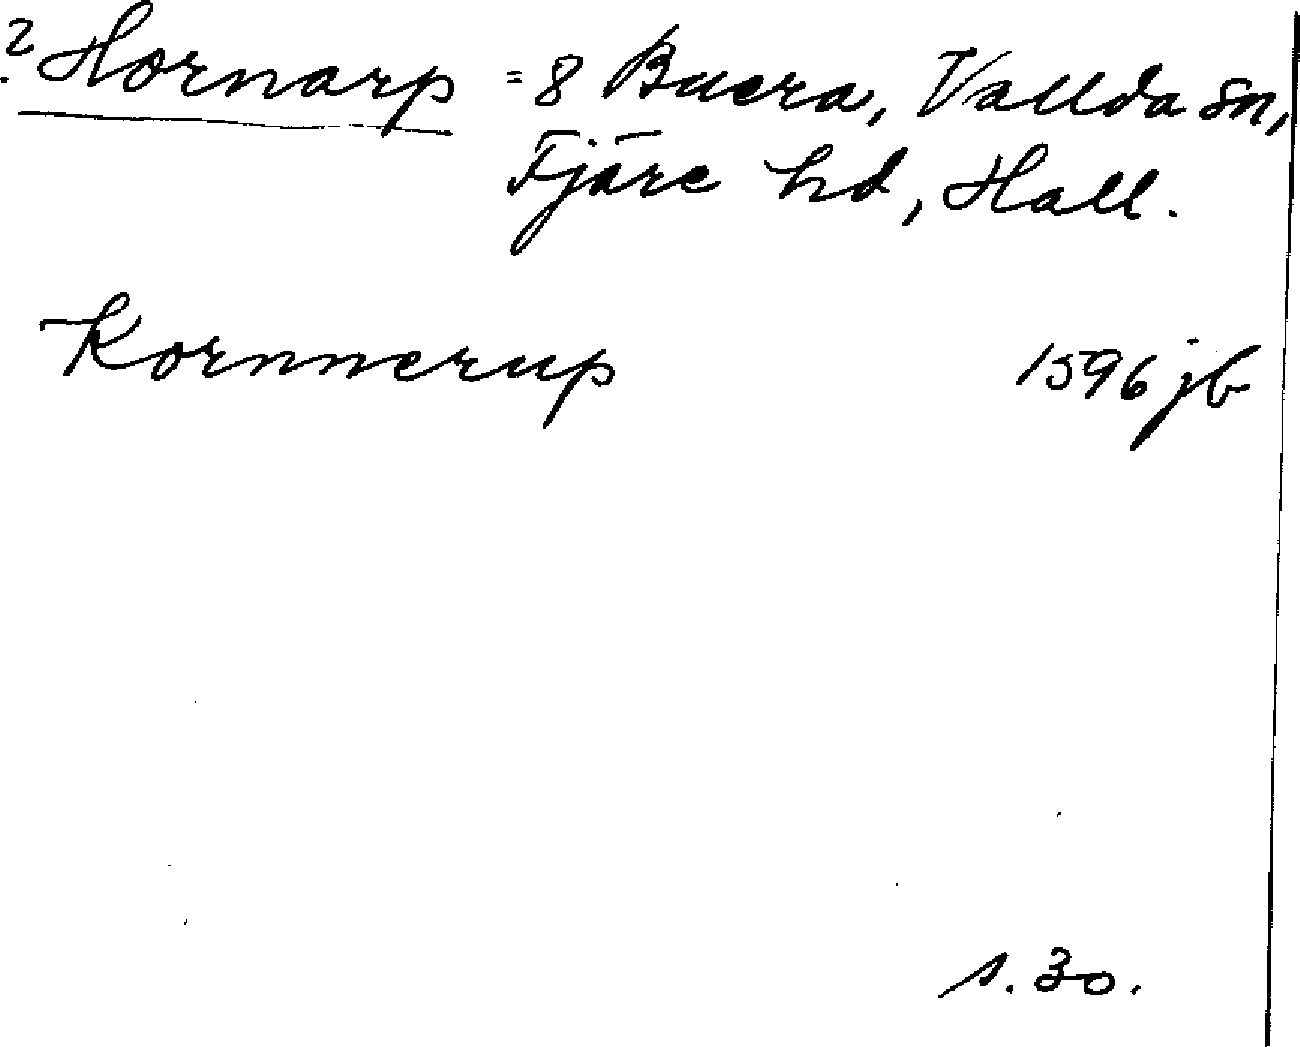 ? Hornarp = 8 Buera, Vallda sn,
Fjäre hd, Hall.
Kornnerup 1596 jb
s. 30.